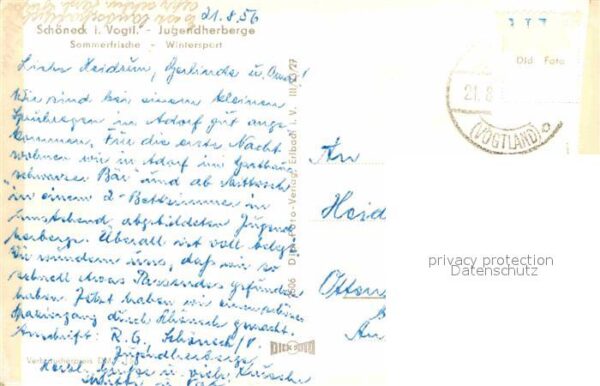 21.8.56
Schöneck i. Vogtl. - Jugendherberge
Sommerfrische - Wintersport
Liebe Heidrun, Gerlinde u.
Wir sind bei einem kleinen
Sprühregen in Adorf gut ange
kommen. Für die erste Nacht
wohnen wir in Adorf im Gasthaus
"schwarzer Bär" und ab Mittwoch
in einem 2-Bettzimmer in
umstehend abgebildeten Jugend
herberge. Überall ist voll belegt
Wir wundern uns, daß wir so
schnell etwas Passendes gefunden
haben. Jetzt haben wir einen schönen
Spaziergang durch Schöneck gemacht.
Anschrift: R. G. Schöneck/V.
Jugendherberge
Herzl. Grüße u. viele Küsse
Verbraucherpreis DM
Dick-Foto-Verlag, Erlbach i. V. III/12/29
DICK FOTO
An
Heid
Otten
Did Foto
21.8
(VOGTLAND)
privacy protection
Datenschutz